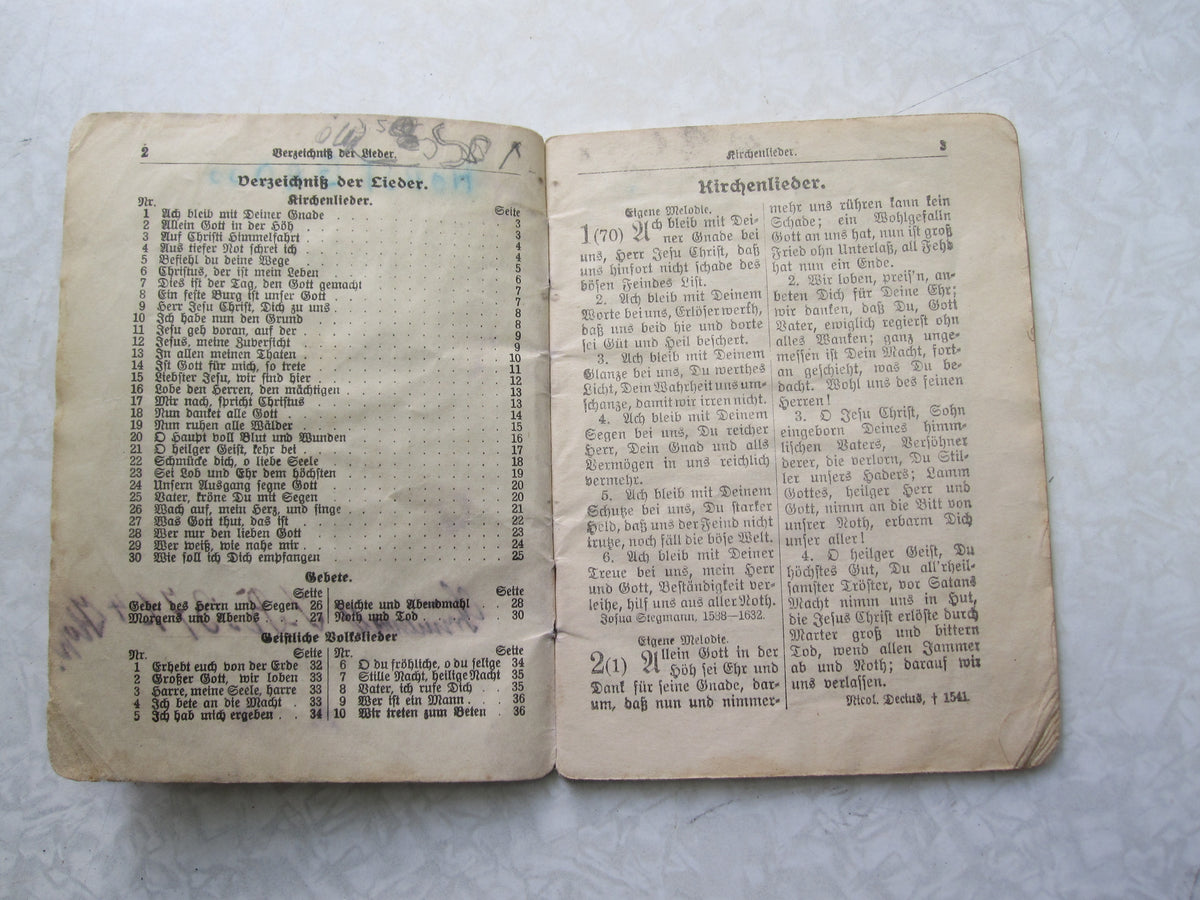 2
Verzeichniß der Lieder.
Verzeichniß der Lieder.
Kirchenlieder.
Nr. Seite
1 Ach bleib mit Deiner Gnade 3
2 Allein Gott in der Höh 3
3 Auf Christi Himmelfahrt 4
4 Aus tiefer Not schrei ich 4
5 Befiehl du deine Wege 5
6 Christus, der ist mein Leben 6
7 Dies ist der Tag, den Gott gemacht 7
8 Ein feste Burg ist unser Gott 7
9 Herr Jesu Christ, Dich zu uns 8
10 Ich habe nun den Grund 8
11 Jesu geh voran, auf der 9
12 Jesus, meine Zuversicht 9
13 In allen meinen Thaten 10
14 Ist Gott für mich, so trete 11
15 Liebster Jesu, wir sind hier 12
16 Lobe den Herren, den mächtigen 13
17 Mir nach, spricht Christus 13
18 Nun danket alle Gott 14
19 Nun ruhen alle Wälder 15
20 O Haupt voll Blut und Wunden 16
21 O heilger Geist, kehr bei 17
22 Schmücke dich, o liebe Seele 18
23 Sei Lob und Ehr dem höchsten 19
24 Unsern Ausgang segne Gott 20
25 Vater, kröne Du mit Segen 20
26 Wach auf, mein Herz, und singe 21
27 Was Gott thut, das ist 22
28 Wer nur den lieben Gott 23
29 Wer weiß, wie nahe mir 24
30 Wie soll ich Dich empfangen 25
Gebete.
Seite Seite
Gebet des Herrn und Segen 26 Beichte und Abendmahl 28
Morgens und Abends 27 Noth und Tod 30
Geistliche Volkslieder
Nr. Seite Nr. Seite
1 Erhebt euch von der Erde 32 6 O du fröhliche, o du selige 34
2 Großer Gott, wir loben 33 7 Stille Nacht, heilige Nacht 35
3 Harre, meine Seele, harre 33 8 Vater, ich rufe Dich 35
4 Ich bete an die Macht 33 9 Wer ist ein Mann 36
5 Ich hab mich ergeben 34 10 Wir treten zum Beten 36
Kirchenlieder.
3
Kirchenlieder.
Eigene Melodie.
1(70) Ach bleib mit Dei-
ner Gnade bei
uns, Herr Jesu Christ, daß
uns hinfort nicht schade des
bösen Feindes List.
2. Ach bleib mit Deinem
Worte bei uns, Erlöser werth,
daß uns beid hie und dorte
sei Güt und Heil beschert.
3. Ach bleib mit Deinem
Glanze bei uns, Du werthes
Licht, Dein Wahrheit uns um-
schanze, damit wir irren nicht.
4. Ach bleib mit Deinem
Segen bei uns, Du reicher
Herr, Dein Gnad und alls
Vermögen in uns reichlich
vermehr.
5. Ach bleib mit Deinem
Schutze bei uns, Du starker
Held, daß uns der Feind nicht
trutze, noch fäll die böse Welt.
6. Ach bleib mit Deiner
Treue bei uns, mein Herr
und Gott, Beständigkeit ver-
leihe, hilf uns aus aller Noth.
Josua Stegmann, 1588—1632.
Eigene Melodie.
2(1) Allein Gott in der
Höh sei Ehr und
Dank für seine Gnade, dar-
um, daß nun und nimmer-
mehr uns rühren kann kein
Schade; ein Wohlgefalln
Gott an uns hat, nun ist groß
Fried ohn Unterlaß, all Fehd
hat nun ein Ende.
2. Wir loben, preis'n, an-
beten Dich für Deine Ehr;
wir danken, daß Du, Gott
Vater, ewiglich regierst ohn
alles Wanken; ganz unge-
messen ist Dein Macht, fort-
an geschieht, was Du be-
dacht. Wohl uns des feinen
Herren!
3. O Jesu Christ, Sohn
eingeborn Deines himm-
lischen Vaters, Versöhner
derer, die verlorn, Du Stil-
ler unsers Haders; Lamm
Gottes, heilger Herr und
Gott, nimm an die Bitt von
unsrer Noth, erbarm Dich
unser aller!
4. O heilger Geist, Du
höchstes Gut, Du all'rheil-
samster Tröster, vor Satans
Macht nimm uns in Hut,
die Jesus Christ erlöste durch
Marter groß und bittern
Tod, wend allen Jammer
ab und Noth; darauf wir
uns verlassen.
Nicol. Decius, † 1541.